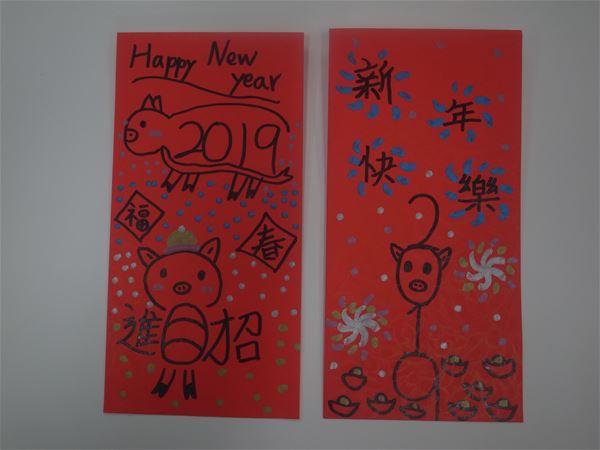 Happy New
year
2019
福
春
進日招
新年
快樂
2
0
1
9